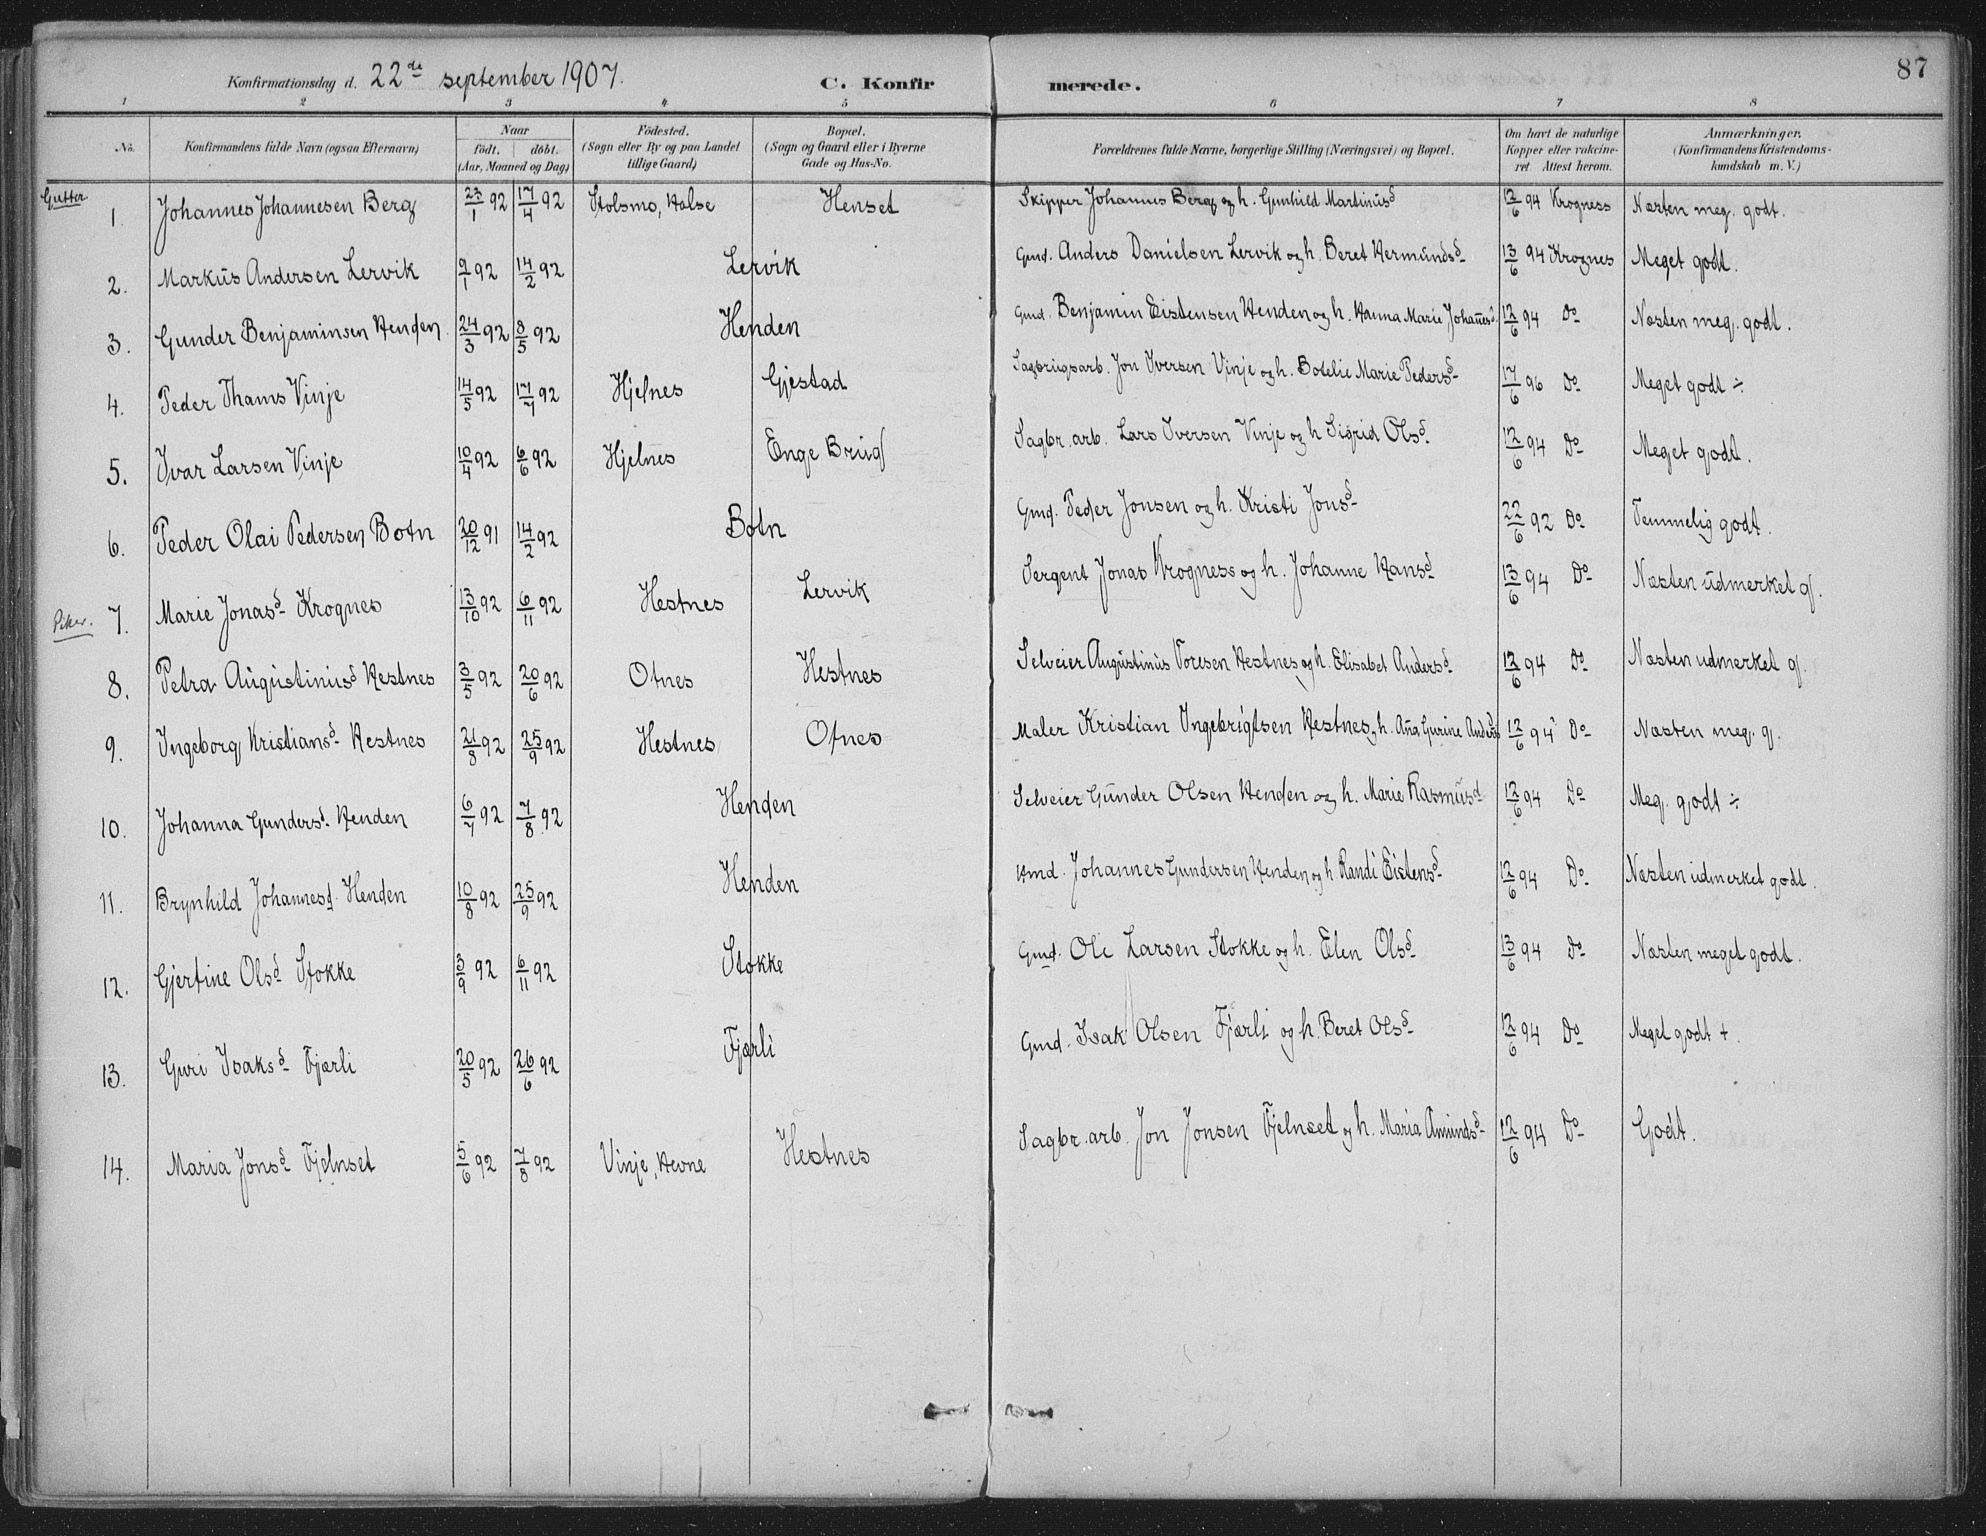 87
Konfirmationsdag d. 22de september 1907. C. Konfirmerede.
1 2 3 4 5 6 7 8
No. Konfirmandens fulde Navn (ogsaa Efternavn) Naar födt. döbt. (Aar, Maaned og Dag) Födested. (Sogn eller By og paa Landet tillige Gaard) Bopæl. (Sogn og Gaard eller i Byerne Gade og Hus-No. Forældrenes fulde Navne, borgerlige Stilling (Næringsvei) og Bopæl. Om havt de naturlige Kopper eller vakcineret Attest herom. Anmærkninger. (Konfirmandens Kristendomskundskab m. V.)
Gutter
1. Johannes Johannesen Berg 23/1 92 17/4 92 Stolsmo, Halse Henset Skipper Johannes Berg og h. Gunhild Martinusd 12/6 94 Krogness Næsten meg. godt.
2. Markus Andersen Lervik 9/1 92 14/2 92 Lervik Gmd. Anders Danielsen Lervik og h. Beret Hermundsd 13/6 94 Krognes Meget godt.
3. Gunder Benjaminsen Henden 24/3 92 8/5 92 Henden Gmd. Benjamin Eistensen Henden og h. Hanna Marie Johannesd. 12/6 94 Do Næsten meg. godt.
4. Peder Thams Vinje 14/5 92 17/7 92 Hjelnes Gjestad Sagbrugsarb. Jon Iversen Vinje og h. Botelie Marie Pedersd 17/6 96 Do Meget godt ÷
5. Ivar Larsen Vinje 10/4 92 6/6 92 Hjelnes Enge Brug Sagbr. arb. Lars Iversen Vinje og h Sigrid Olsd. 12/6 94 Do Meget godt.
6. Peder Olai Pedersen Botn 20/12 91 14/2 92 Botn Gmd. Peder Jonsen og h. Kristi Jonsd 22/6 92 Do Temmelig godt.
Piker.
7. Marie Jonasd Krognes 13/10 92 6/11 92 Hestnes Lervik Sergent Jonas Krogness og h. Johanne Hansd 13/6 94 Do Næsten udmerket g.
8. Petra Augustinusd Hestnes 3/5 92 20/6 92 Otnes Hestnes Selveier Augustinus Toresen Hestnes og h. Elisabet Andersd 12/6 94 Do Næsten udmerket g.
9. Ingeborg Kristiansd Hestnes 21/8 92 25/9 92 Hestnes Otnes Maler Kristian Ingebrigtsen Hestnes, h. Ana Gurine Andersd 12/6 94 Do Næsten meg. g.
10. Johanna Gundersd. Henden 6/7 92 7/8 92 Henden Selveier Gunder Olsen Henden og h. Marie Rasmusd 12/6 94 Do Meg. godt ÷
11. Brynhild Johannesd. Henden 10/8 92 25/9 92 Henden Hmd. Johannes Gundersen Henden og h Randi Eistensd 12/6 94 Do Næsten udmerket godt.
12. Gjertine Olsd Stokke 3/9 92 6/11 92 Stokke Gmd. Ole Larsen Stokke og h. Elen Olsd 13/6 94 Do Næsten meget godt.
13. Guri Isaksd Fjærli 20/5 92 26/6 92 Fjærli Gmd. Isak Olsen Fjærli og h. Beret Olsd 12/6 94 Do Meget godt +
14. Maria Jonsd Fjelnset 5/6 92 7/8 92 Vinje, Hevne Hestnes Sagbr. arb. Jon Jonsen Fjelnset og h. Maria Amundsd 12/6 94 Do Godt.